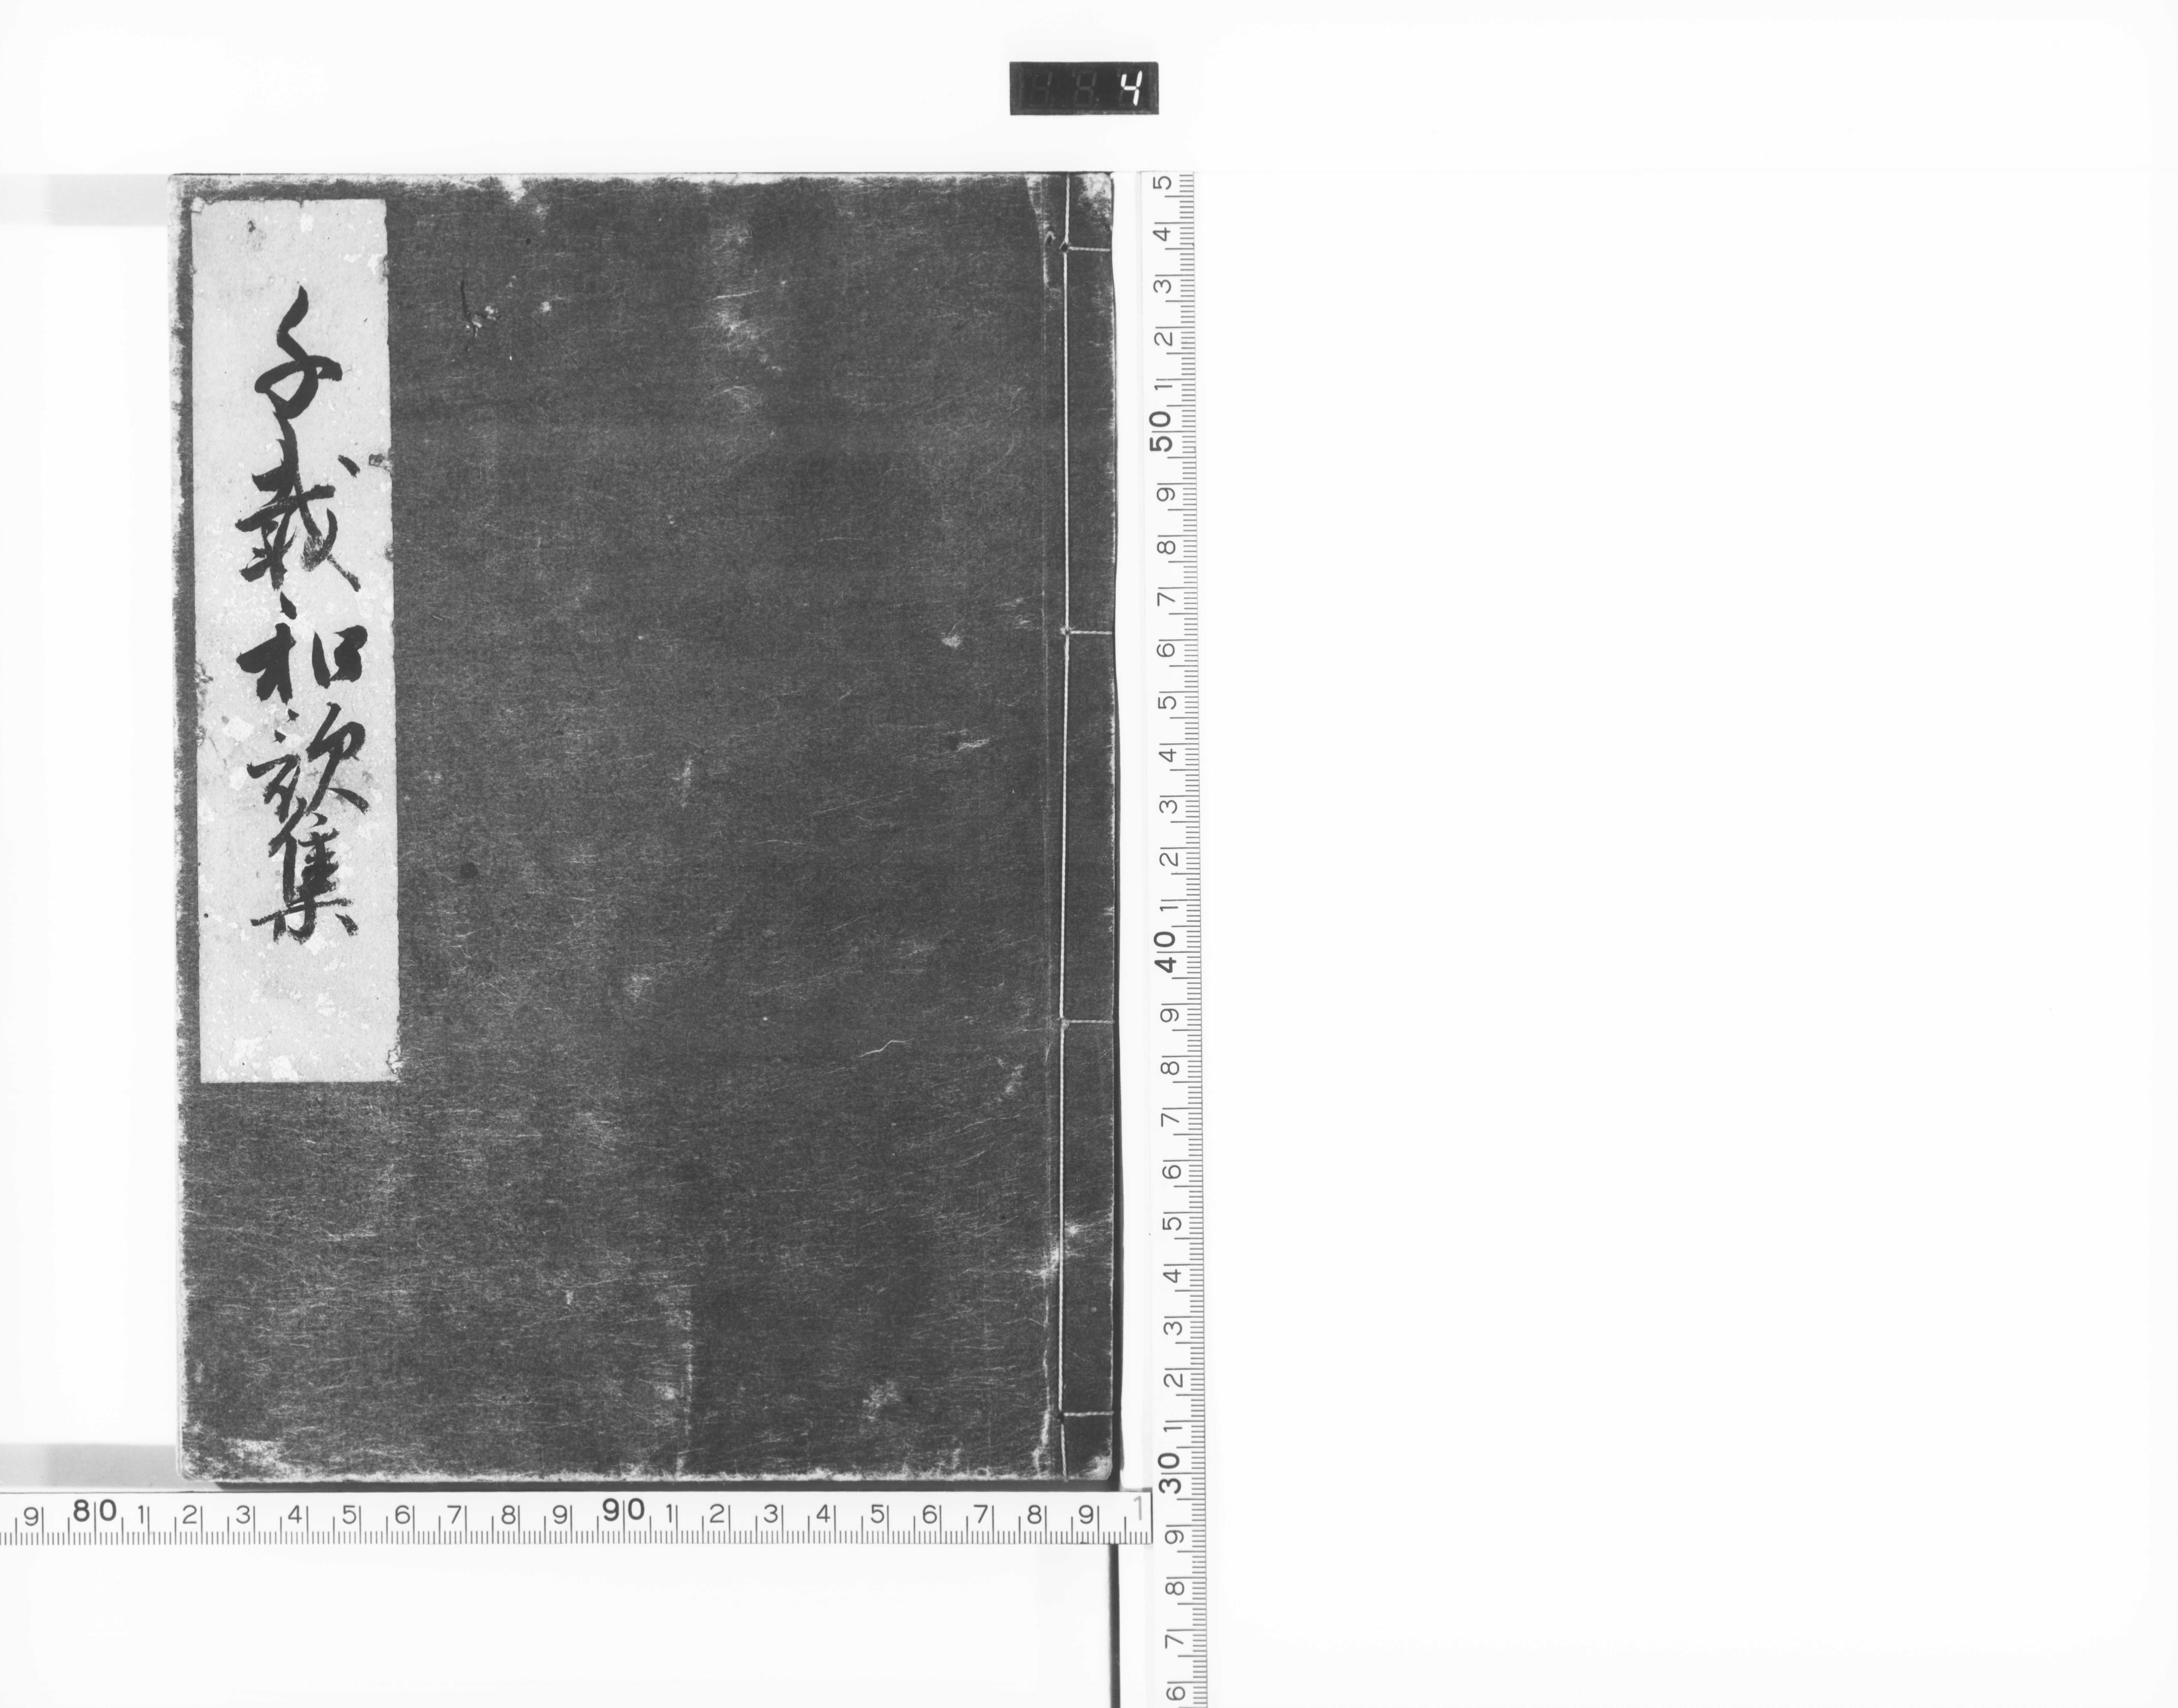 4
千載和歌集
5 4 3 2 1 50 9 8 7 6 5 4 3 2 1 40 9 8 7 6 5 4 3 2 1 30 9 8 7 6
9 80 1 2 3 4 5 6 7 8 9 90 1 2 3 4 5 6 7 8 9 1